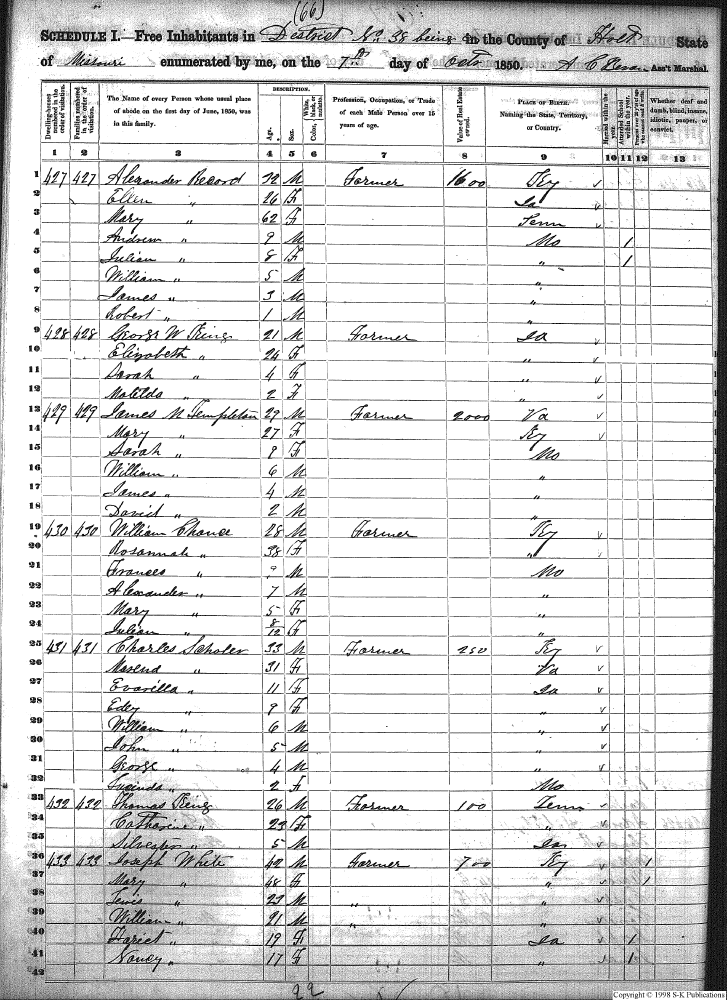 (66)
SCHEDULE I.—Free Inhabitants in District No 38 being in the County of Holt State
of Missouri enumerated by me, on the 7th day of Octr 1850. A C Ass't Marshal.
Dwelling-houses numbered in the order of visitation.
Families numbered in the order of visitation.
The Name of every Person whose usual place of abode on the first day of June, 1850, was in this family.
DESCRIPTION.
Age.
Sex.
Color, White, black, or mulatto.
Profession, Occupation, or Trade of each Male Person over 15 years of age.
Value of Real Estate owned.
PLACE OF BIRTH. Naming the State, Territory, or Country.
Married within the year.
Attended School within the year.
Whether deaf and dumb, blind, insane, idiotic, pauper, or convict.
1 2 3 4 5 6 7 8 9 10 11 12 13
1 427 427 Alexander Record 32 M Farmer 1600 Ky
2 Ellen " 26 F Ia
3 Mary " 62 F Tenn
4 Andrew " 9 M Mo 1
5 Julian " 8 F " 1
6 William " 5 M "
7 James " 3 M "
8 Robert " 1 M "
9 428 428 George W King 21 M Farmer Ia
10 Elizabeth " 24 F "
11 Sarah " 4 F "
12 Matilda " 2 F "
13 429 429 James N Templeton 29 M Farmer 2000 Va
14 Mary " 27 F Ky
15 Sarah " 8 F Mo
16 William " 6 M "
17 James " 4 M "
18 David " 2 M "
19 430 430 William Chance 28 M Farmer Ky
20 Rosannah " 38 F "
21 Frances " 9 M Mo
22 Alexander " 7 M "
23 Mary " 5 F "
24 Julian " 8/12 F "
25 431 431 Charles Scholer 33 M Farmer 250 Ky
26 31 F Va
27 Evarilla " 11 F Ia
28 Edey " 9 F "
29 William " 6 M "
30 John " 5 M "
31 George " 4 M "
32 Lucinda " 2 F Mo
33 432 432 Thomas King 26 M Farmer 100 Tenn
34 Catharine " 23 F "
35 Silvester " 5 M Ia
36 433 433 Joseph White 42 M Farmer 700 Ky 1
37 Mary " 48 F " 1
38 Lewis " 23 M " "
39 William " 21 M " "
40 Hariet " 19 F Ia 1
41 Nancy " 17 F " 1
42
22
Copyright © 1998 S-K Publications